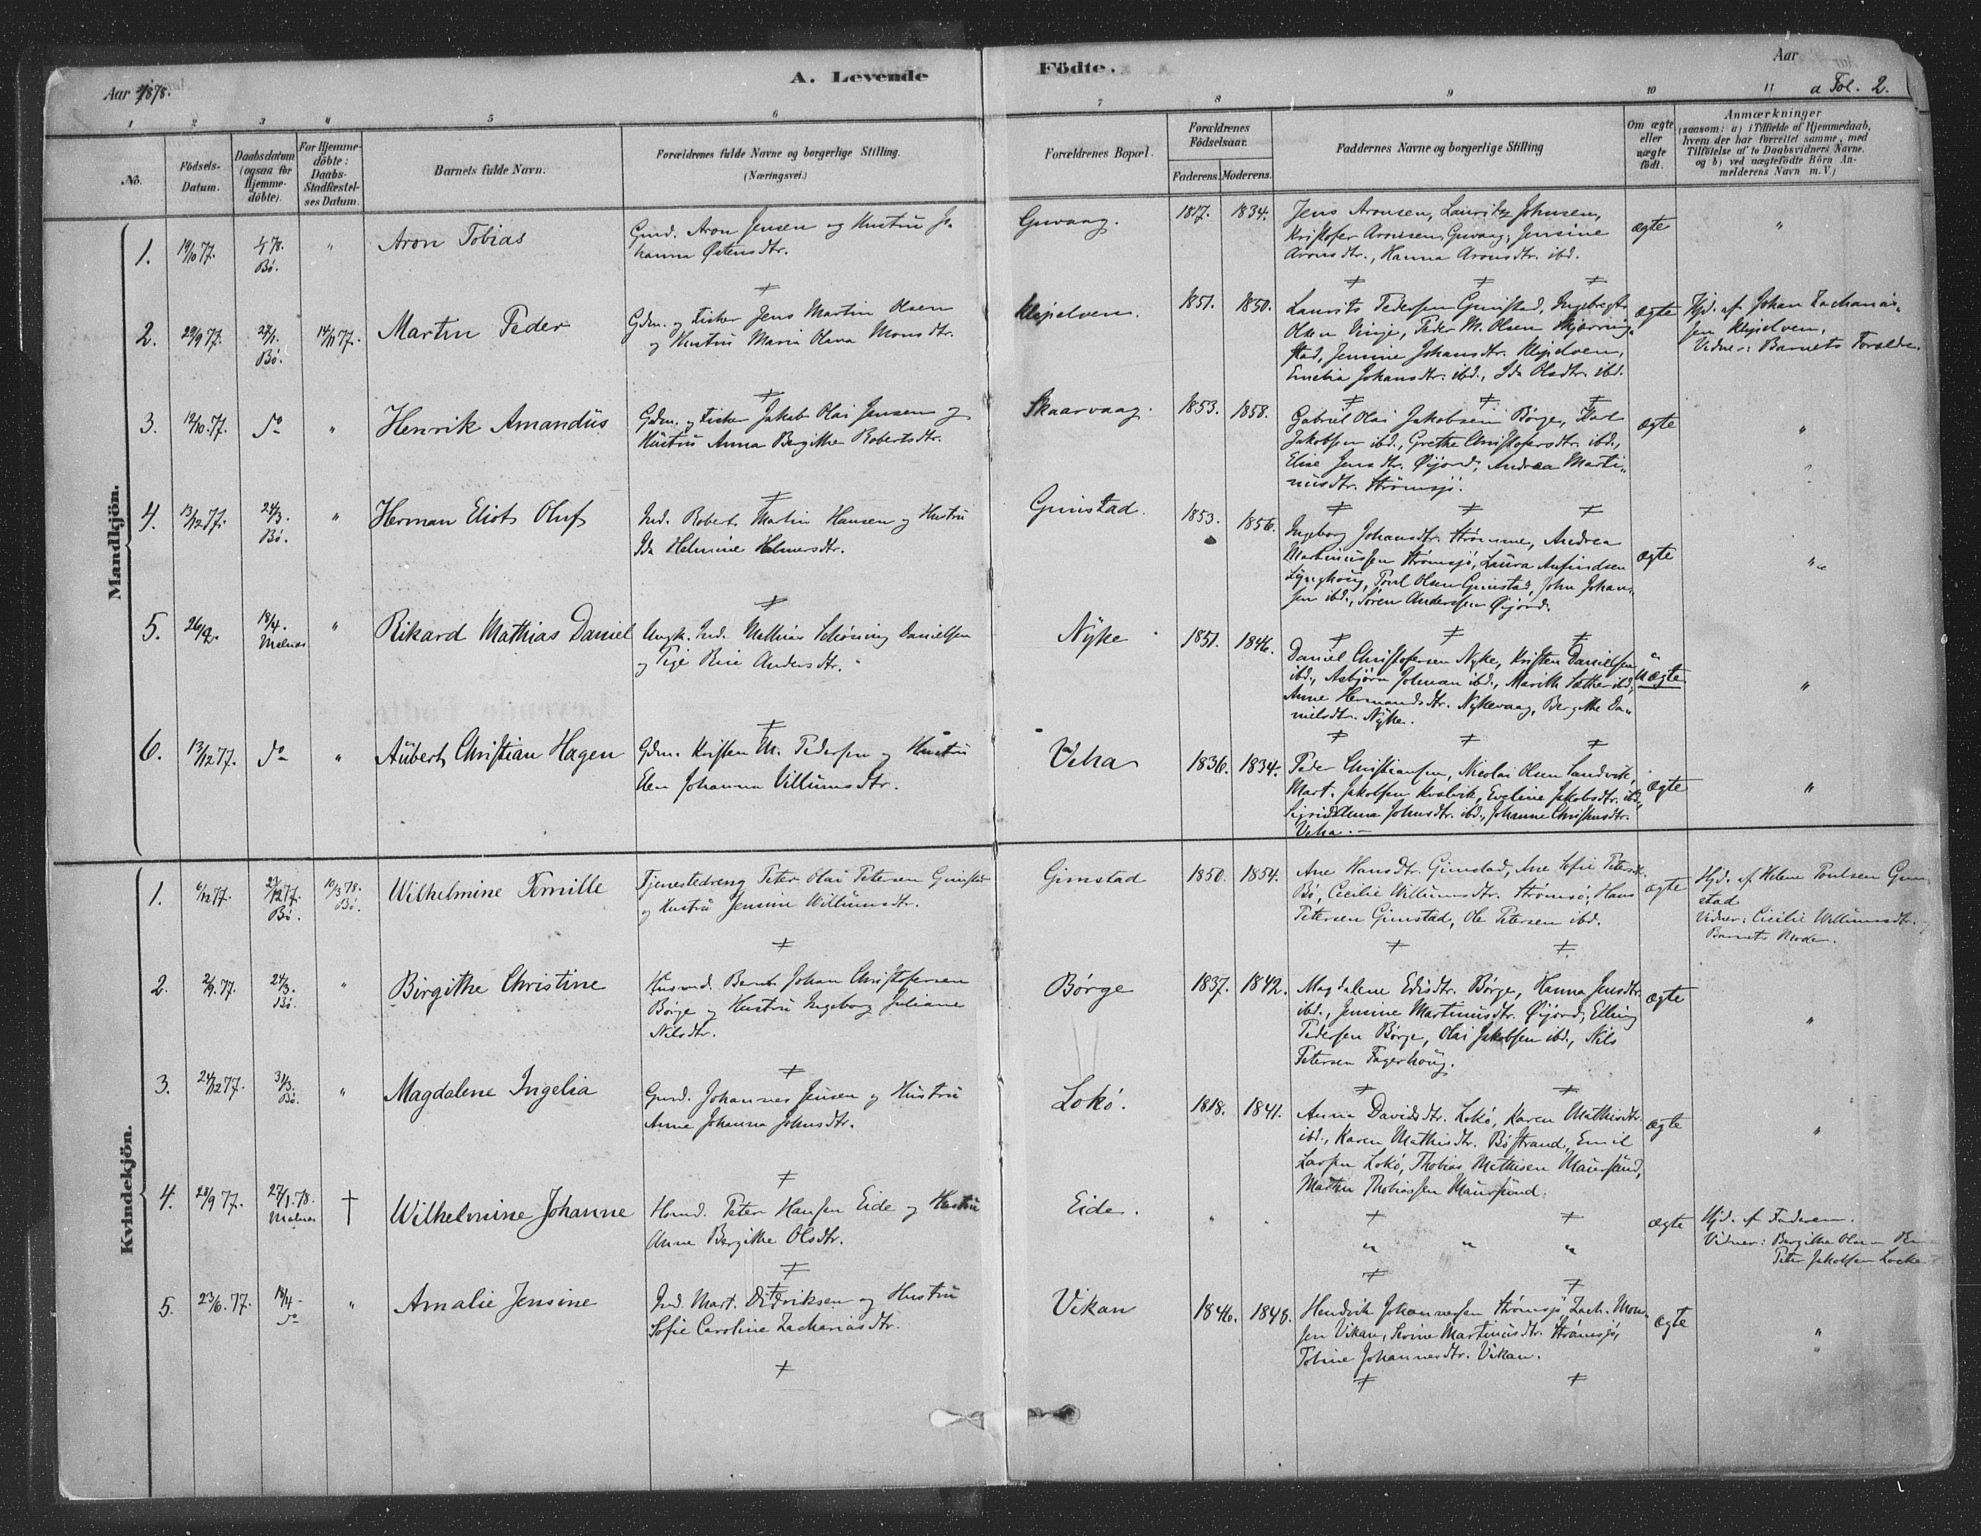 Aar 1878.
A. Levende
Födte.
Aar
a Fol. 2.
1
2
3
4
5
6
7
8
9
10
11
No.
Födsels-
Datum.
Daabsdatum
(ogsaa for
Hjemme-
döbte).
For Hjemme-
döbte:
Daabs-
Stadfæstel-
ses Datum.
Barnets fulde Navn.
Forældrenes fulde Navne og borgerlige Stilling.
(Næringsvei.)
Forældrenes Bopæl.
Forældrenes
Födselsaar.
Faderens.
Moderens.
Faddernes Navne og borgerlige Stilling
Om ægte
eller
uægte
födt.
Anmærkninger
(saasom: a) i Tilfælde af Hjemmedaab,
hvem der har forrettet samme, med
Tilföielse af to Daabsvidners Navne.
og b) ved uægtefödte Börn An-
melderens Navn m. V.)
Mandkjön.
1.
19/10 77.
Bø.
"
Aron Tobias
Gmd. Aron Jensen og Hustru Jo-
hanna Østensdtr.
Guvaag.
1817.
1834.
Jens Aronsen, Lauritz Johnsen,
Kristofer Aronsen, Guvaag, Jensine
Aronsdtr., Hanna Aronsdtr. ibd.
ægte
"
2.
29/9 77.
Bø.
14/11 77.
Martin Peder
Gdm. og Fisker Jens Martin Olsen
og Hustru Maria Olava Monsdtr.
Klejvelven.
1851.
1850.
Laurits Pedersen Gimstad, Ingebregt
Olsen Vinje, Peder M. Olsen Skjærring-
stad, Jensine Johansdtr. Klejvelven,
Emelia Johansdtr. ibd., Ida Olsdtr. ibd.
ægte
Hjd. af Johan Zacharias-
sen Klejvelven.
Vidner: Barnets Forældre.
3.
12/10 77.
Do
"
Henrik Amandus
Gdm. og Fisker Jakob Olai Jensen og
Hustru Anna Bergithe Robertsdtr.
Skaarvaag.
1853.
1858.
Gabriel Olai Jakobsen Børge, Karl
Jakobsen ibd., Grethe Christofersdtr. ibd.,
Elise Jensdtr. Øijord, Andrea Marti-
nusdtr. Strømsjø.
ægte
"
4.
13/12 77.
24/3.
Bø.
"
Herman Eliot Oluf
Ind. Robert Martin Hansen og Hustru
Ida Helmine Helmersdtr.
Gimstad.
1853.
1856.
Ingeborg Johansdtr. Strømme, Andrea
Martinussen Strømsjø, Laura Anfindsen
Lynghoug, Poul Olsen Gimstad, John Johan-
sen ibd., Søren Andersen Øijord.
ægte
"
5.
18/4.
Malnes
"
Rikard Mathias Daniel
Ungk. Ind. Mathias Schøning Danielsen
og Pige Rise Andersdtr.
Nyke
1851.
1846.
Daniel Christofersen Nyke, Kristen Danielsen
ibd., Asbjørn Johnsen ibd., Marith Sæther ibd.,
Anne Hermandsdtr. Nykevaag, Bergithe Da-
nielsdtr. Nyke.
uægte
"
6.
13/12 77.
Do
"
Aubert Christian Hagen
Gdm. Kristen M. Pedersen og Hustru
Elen Johanna Villumsdtr.
Veha
1836.
1834.
Peder Christiansen, Nicolai Olsen Sandvik,
Mart. Jakobsen Kvalvik, Eveline Jakobsdtr. ibd.,
Sigrid Anna Johnsdtr. ibd., Johanne Christensdtr.
Veha.
ægte
"
Kvindekjön.
1.
6/12 77.
Bø.
10/3 78.
Bø.
Wilhelmine Pernille
Tjenestedreng Peter Olai Petersen Gimstad
og Hustru Jensine Willumsdtr.
Gimstad
1850.
1854.
Ane Hansdtr. Gimstad, Ane Sofie Petersdtr.
Bø, Cecilie Willumsdtr. Strømsø, Hans
Petersen Gimstad, Ole Petersen ibd.
ægte
Hjd. af Helene Poulsen Gim-
stad
Vidner: Cecilie Willumsdtr.
Barnets Moder.
2.
24/3.
Bø.
"
Birgithe Christine
Husmd. Bernt Johan Christofersen
Børge og Hustru Ingeborg Juliane
Nilsdtr.
Børge
1837.
1842.
Magdalene Edisdtr. Børge, Hanna Jensdtr.
ibd., Jensine Martinusdtr. Øijord, Elling
Pedersen Børge, Olai Jakobsen ibd., Nils
Petersen Fagerhoug.
ægte
"
3.
24/12 77.
31/3.
Bø.
"
Magdalene Ingelia
Gmd. Johannes Jensen og Hustru
Anne Johanna Johnsdtr.
Lokø.
1818.
1841.
Anna Davidsdtr. Lokø, Karen Mathisdtr.
ibd., Karen Mathisdtr. Bøstrand, Emil
Larsen Lokø, Thobias Mathisen Maursund,
Martin Thobiassen Maursund.
ægte
"
4.
28/9 77.
27/1 78.
Malnes
†
Wilhelmine Johanne
Husmd. Peter Hansen Eide og Hustru
Anne Bergithe Olsdtr.
Eide.
"
"
"
"
"
ægte
Hjd. af Faderen.
Vidner: Bergithe Olsen
Peter Jakobsen
5.
23/6 77.
18/4
Do
"
Amalie Jensine
Ind. Mart. Didriksen og Hustru
Sofie Caroline Zachariasdtr.
Vikan
1846.
1848.
Hendrik Johannessen Strømsjø, Zach. Mon-
sen Vikan, Serine Martinusdtr. Strømsjø,
Toline Johannesdtr. Vikan.
ægte
"